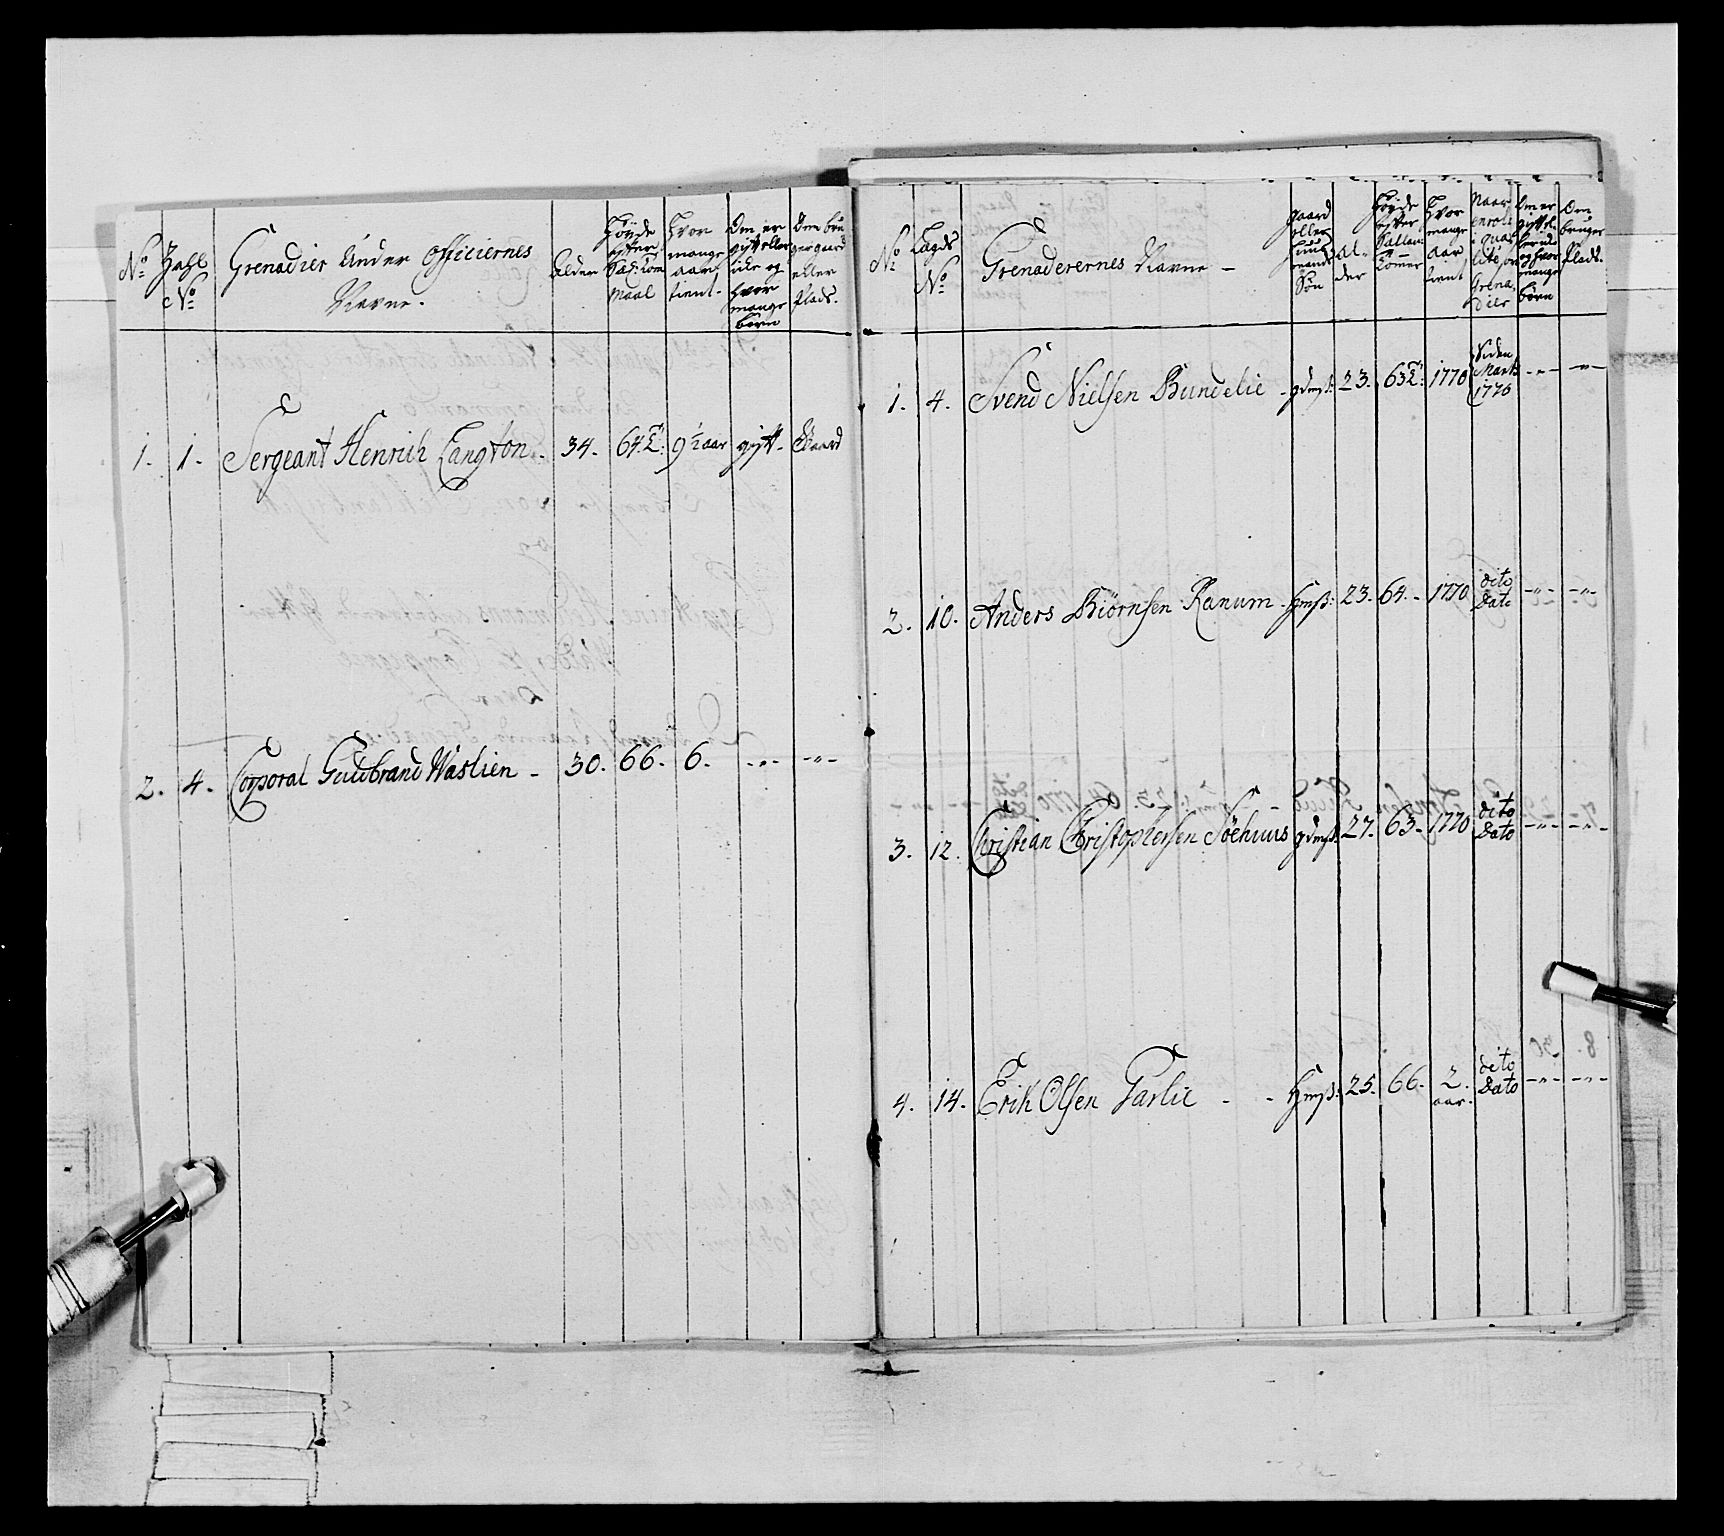 No
Zahl No
Grenadier Under Officiernes Navne.
Alder
Høyde efter Sax: tom Maal
Hvor mange aar tient.
Om er gift eller icke og hvor mange børn
Om bruger gaard eller Plads.
1. 1. Sergeant Henrich Langton. 34. 64 T: 9 1/2 aar gift. Gaard
2. 4. Corporal Gudbrand Waslien - 30. 66. 6. -"- -"-
No
Lægds No
Grenaderernes Navne -
gaard eller Huusmands Søn
Alder
Høyde efter
Hvor mange Aar tient
Naar
Grenadier
Om er gift
og hvor mange børn
Om bruger Plads.
1. 4. Svend Nielsen Bundelie - gdmß: 23. 63 T: 1770 Siden Marti 1776 -"- -"-
2. 10. Anders Biørnsen Ranum - Hmß: 23. 64. - 1770 dito Dato -"- -"-
3. 12. Christian Christophersen Søehuus gdmß: 27. 63 - 1770 dito Dato -"- -"-
4. 14. Erik Olsen Tarlie - - Hmß: 25. 66. 2. aar. dito Dato -"- -"-